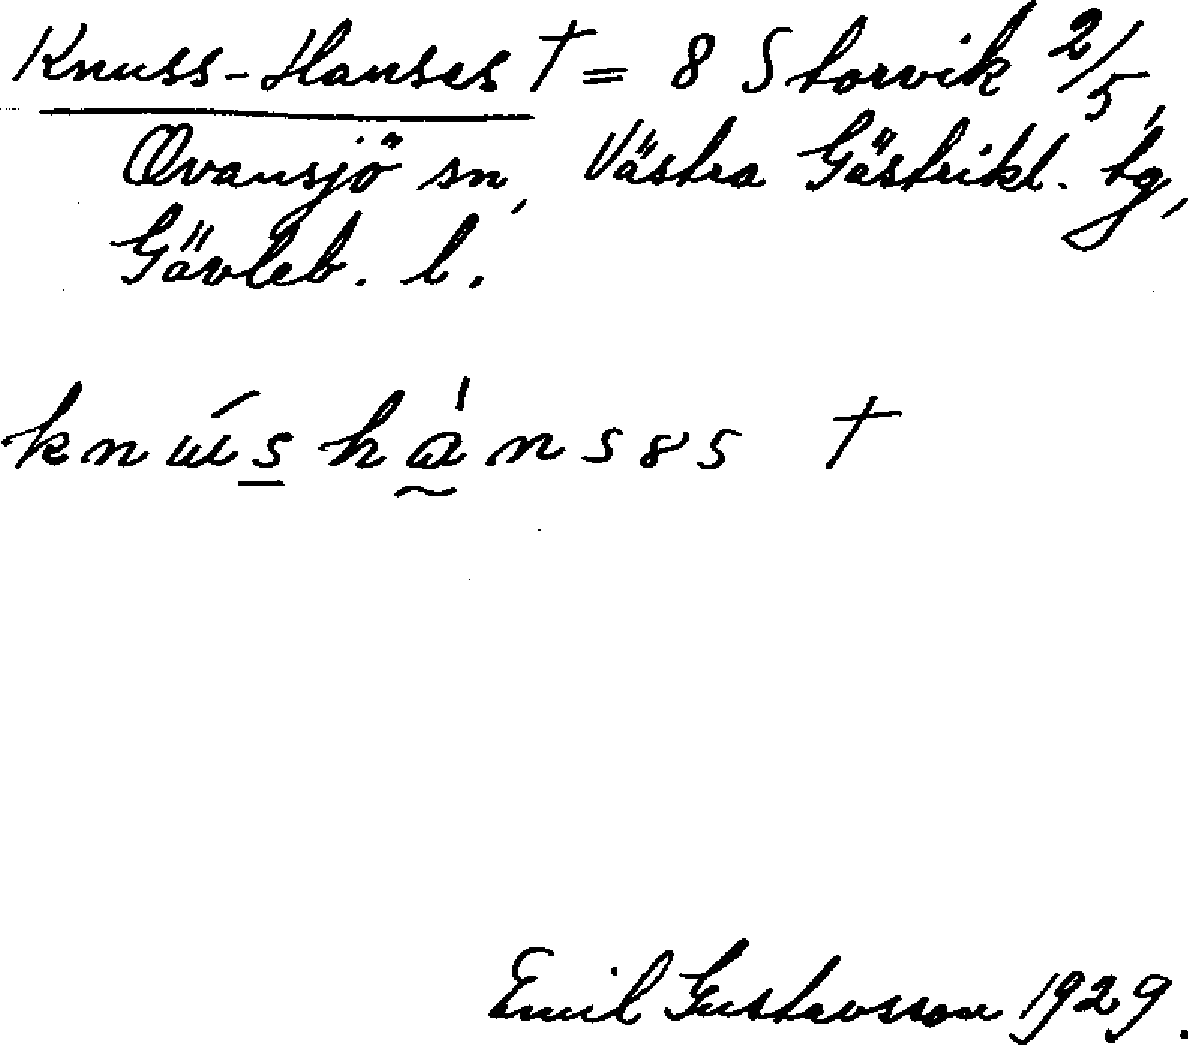 Knuss-Hanses † = 8 Storvik 2/5,
Ovansjö sn, Västra Gästrikl. tg,
Gävleb. l.
knu̇́s hȧns85 †
Emil Gustavsson 1929.